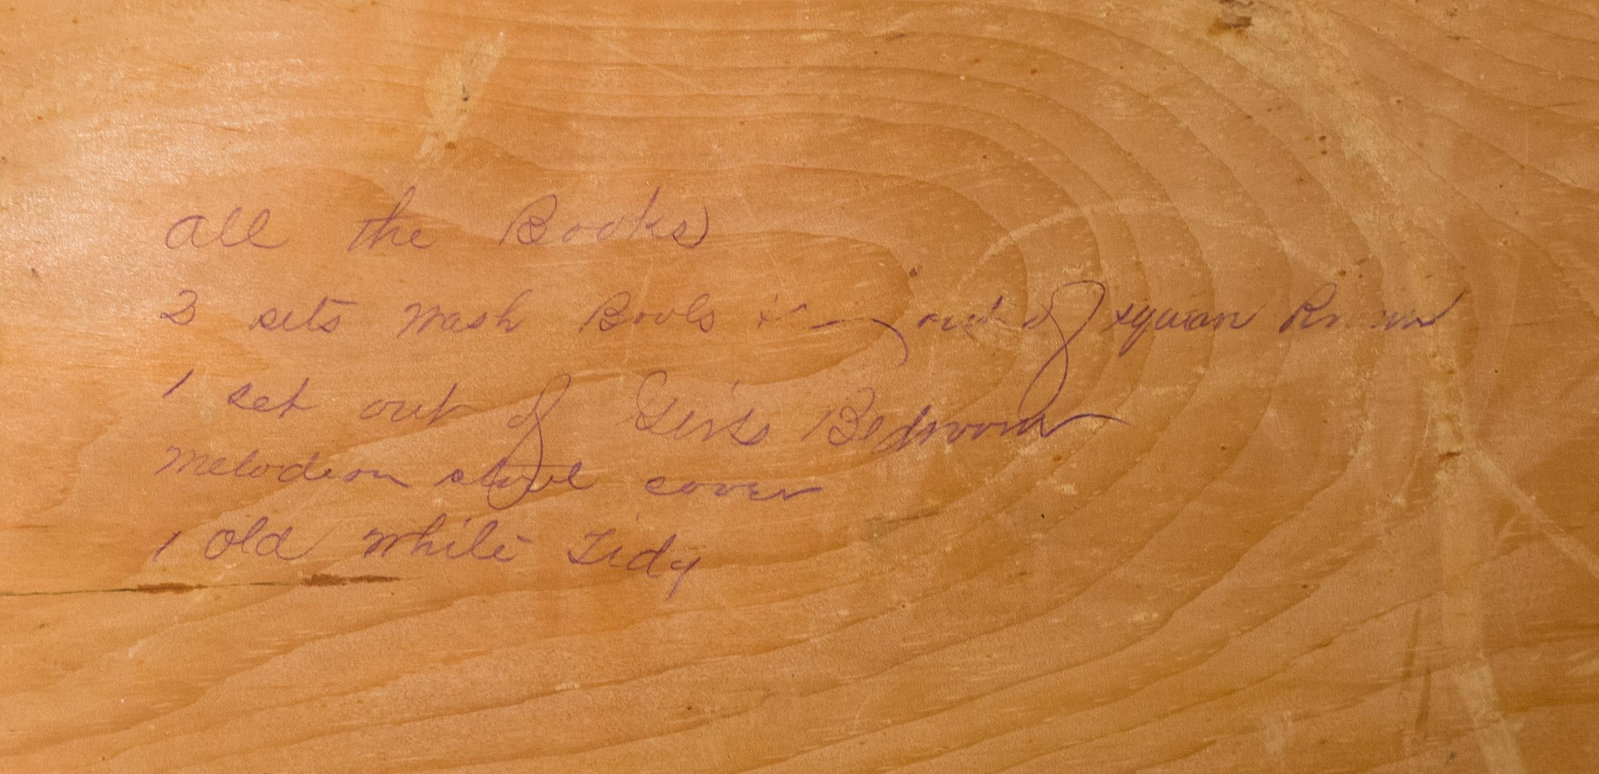 all the Books
sets Wash Bools out of squian Room
1 set out of Bedroom
Melodeon stool cover
1 Old White Tidy